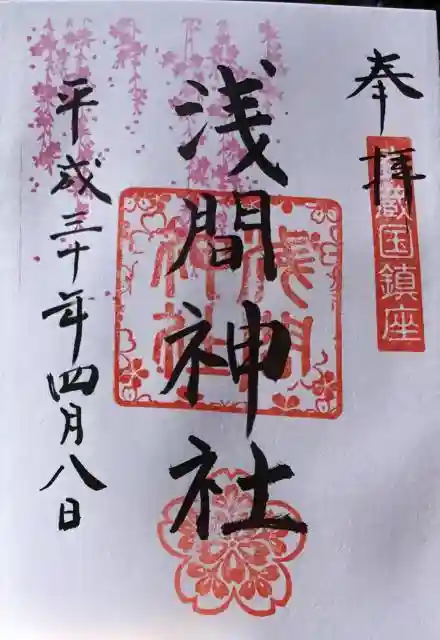 奉拝
武蔵国鎮座
浅間神社
浅間神社
平成三十年四月八日